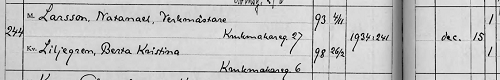 M. Larsson, Natanael, Verkmästare 93 4/11
244 Krukmakareg. 27 1934:241 dec. 15 1
Kv. Liljegren, Berta Kristina 98 26/2 1
Krukmakareg. 6